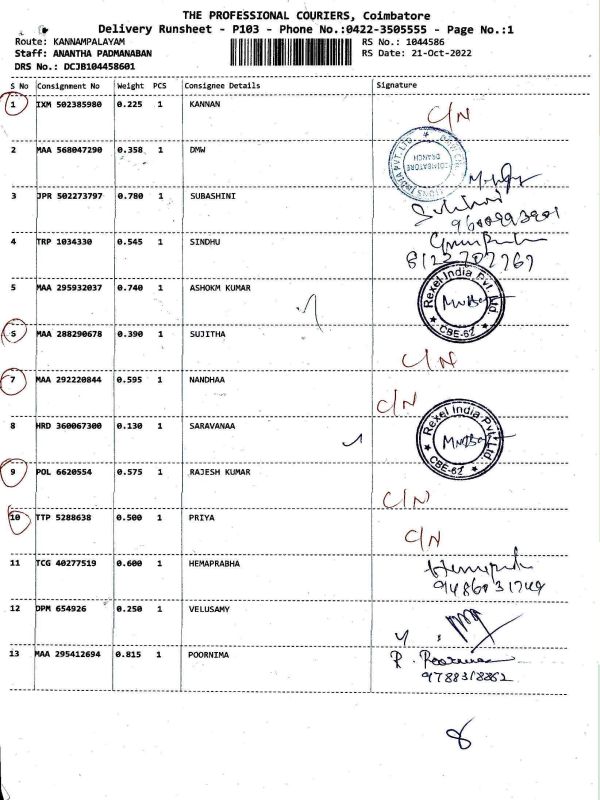 THE PROFESSIONAL COURIERS, Coimbatore
Delivery Runsheet - P103 - Phone No.:0422-3505555 - Page No.:1
Route: KANNAMPALAYAM RS No.: 1044586
Staff: ANANTHA PADMANABAN RS Date: 21-Oct-2022
DRS No.: DCJB104458601
S No Consignment No Weight PCS Consignee Details Signature
1 IXM 502385980 0.225 1 KANNAN C/N
2 MAA 568047290 0.358 1 DMW
COIMBATORE
BRANCH
3 JPR 502273797 0.780 1 SUBASHINI
4 TRP 1034330 0.545 1 SINDHU
8123707769
5 MAA 295932037 0.740 1 ASHOKM KUMAR Rexel India Pvt. Ltd. CBE-62
6 MAA 288290678 0.390 1 SUJITHA C/N
7 MAA 292220844 0.595 1 NANDHAA C/N
8 HRD 360067300 0.130 1 SARAVANAA Rexel India Pvt. Ltd. CBE-62
9 POL 6620554 0.575 1 RAJESH KUMAR C/N
10 TTP 5288638 0.500 1 PRIYA C/N
11 TCG 40277519 0.600 1 HEMAPRABHA
9486031749
12 DPM 654926 0.250 1 VELUSAMY
13 MAA 295412694 0.815 1 POORNIMA
9788318862
8